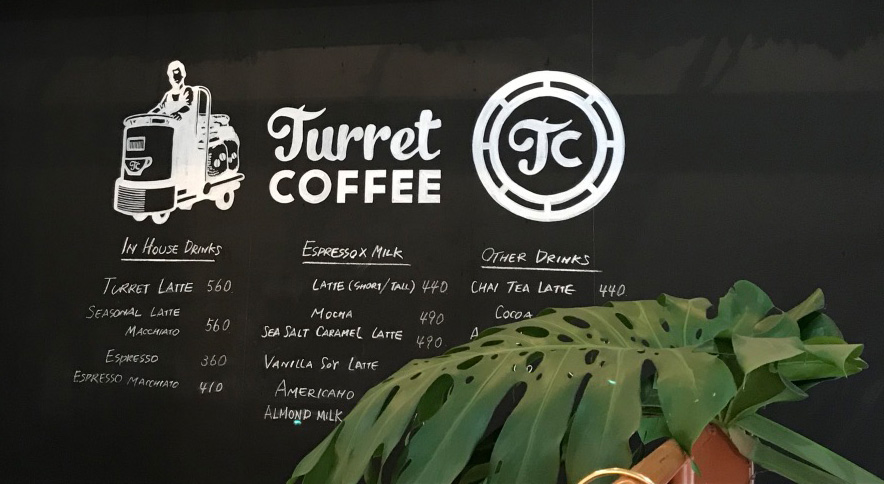 Turret
COFFEE
TC
TC
IN HOUSE DRINKS
TURRET LATTE 560
SEASONAL LATTE
MACCHIATO 560
ESPRESSO 360
ESPRESSO MACCHIATO 410
ESPRESSO X MILK
LATTE (SHORT/TALL) 440
MOCHA 490
SEA SALT CARAMEL LATTE 490
VANILLA SOY LATTE
AMERICANO
ALMOND MILK
OTHER DRINKS
CHAI TEA LATTE 440
COCOA